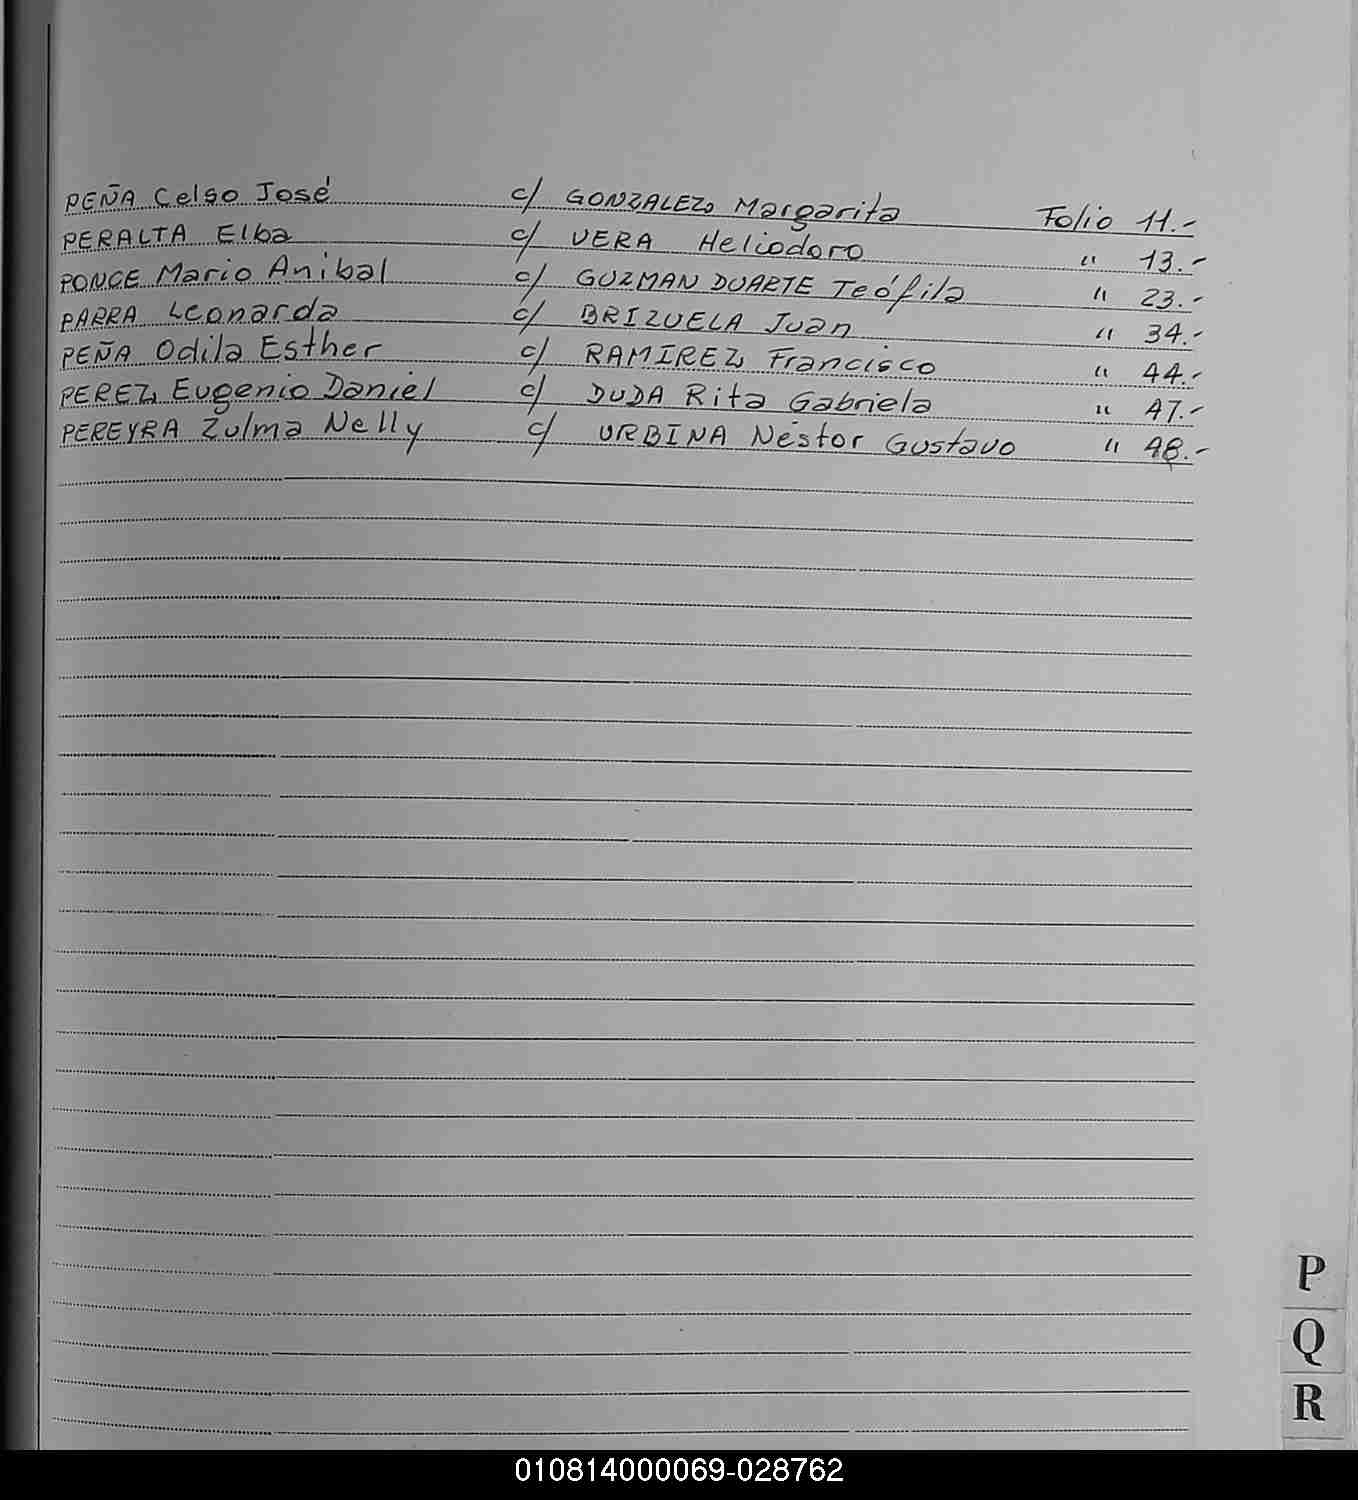 PEÑA Celso José c/ GONZALEZ, Margarita Folio 11.-
PERALTA Elba c/ VERA Heliodoro " 13.-
PONCE Mario Anibal c/ GUZMAN DUARTE Teófila " 23.-
PARRA Leonarda c/ BRIZUELA Juan " 34.-
PEÑA Odila Esther c/ RAMIREZ, Francisco " 44.-
PEREZ, Eugenio Daniel c/ DUDA Rita Gabriela " 47.-
PEREYRA Zulma Nelly c/ URBINA Néstor Gustavo " 48.-
P
Q
R
010814000069-028762